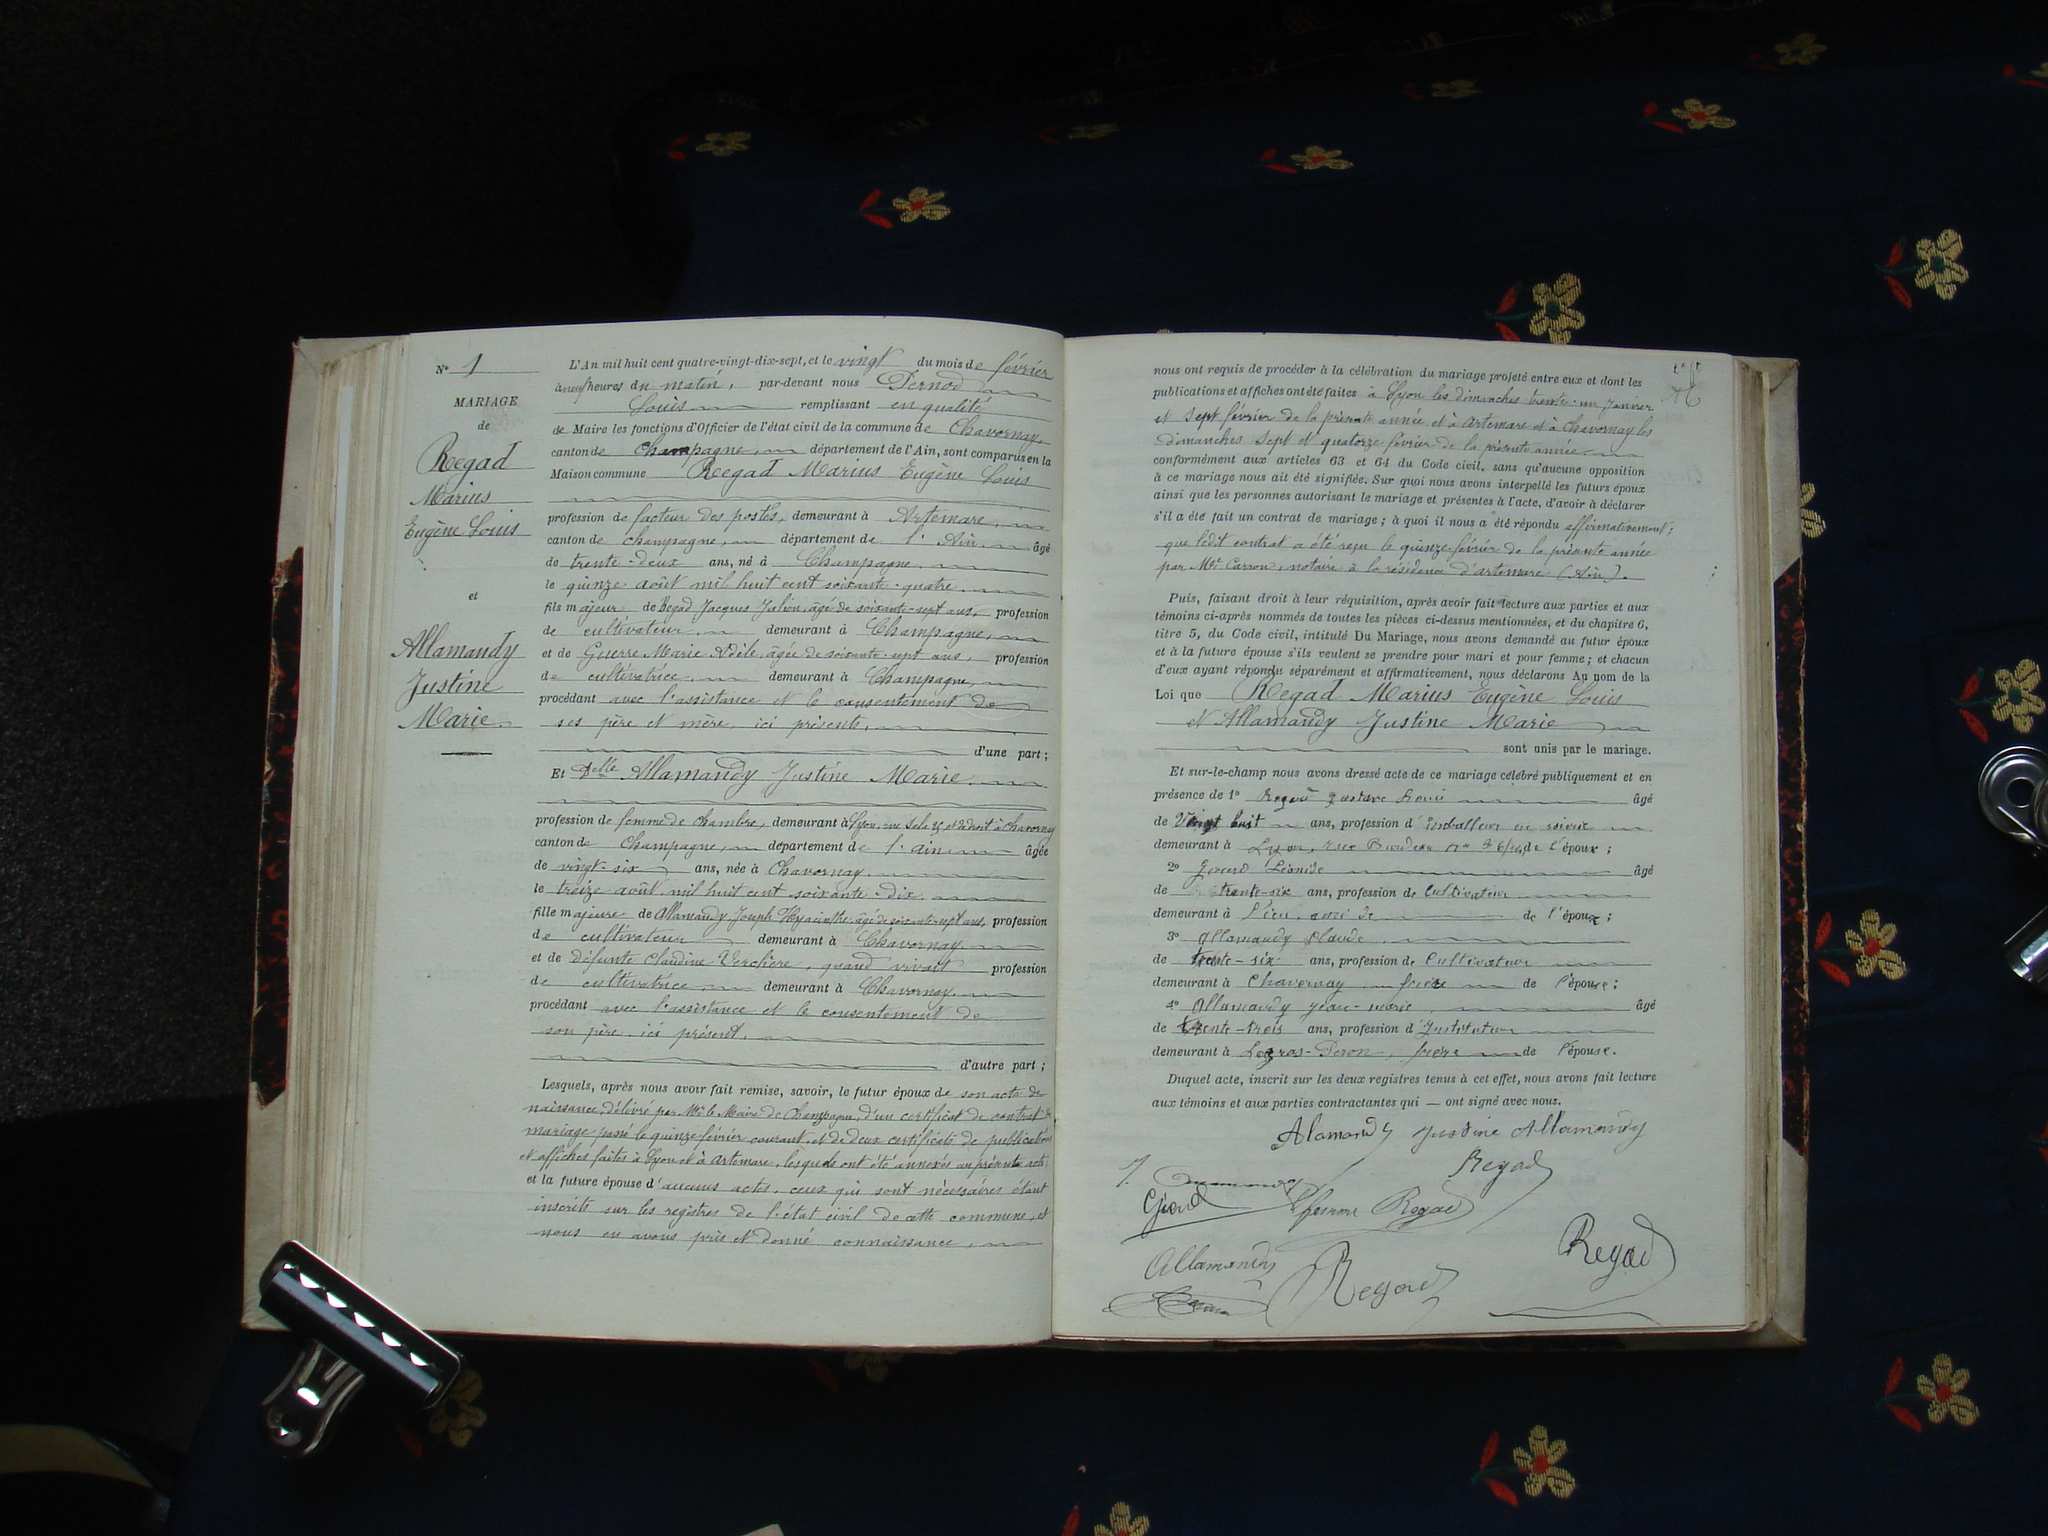 N° 1
MARIAGE
de
Regad
Marius
Eugène Louis
et
Allamandy
Justine
Marie
L'An mil huit cent quatre-vingt-dix-sept, et le vingt du mois de février
à neuf heures du matin, par-devant nous Pernod
Louis remplissant en qualité
de Maire les fonctions d'Officier de l'état civil de la commune de Chavornay,
canton de Champagne, département de l'Ain, sont comparus en la
Maison commune Regad Marius Eugène Louis
profession de facteur des postes, demeurant à Artemare,
canton de Champagne, département de l'Ain âgé
de trente-deux ans, né à Champagne
le quinze août mil huit cent soixante-quatre
fils majeur de Regad Jacques Julien, âgé de soixante-sept ans, profession
de cultivateur demeurant à Champagne,
et de Guerre Marie Adèle, âgée de soixante-sept ans, profession
de cultivatrice demeurant à Champagne,
procédant avec l'assistance et le consentement de
ses père et mère, ici présents,
d'une part ;
Et Delle Allamandy Justine Marie
profession de femme de chambre, demeurant à Lyon, rue Sala et de droit à Chavornay
canton de Champagne, département de l'Ain âgée
de vingt-six ans, née à Chavornay
le treize août mil huit cent soixante-dix
fille majeure de Allamandy Joseph Hyacinthe, âgé de soixante-sept ans, profession
de cultivateur demeurant à Chavornay
et de défunte Claudine Verchère, quand vivait profession
de cultivatrice demeurant à Chavornay
procédant avec l'assistance et le consentement de
son père ici présent,
d'autre part ;
Lesquels, après nous avoir fait remise, savoir, le futur époux de son acte de
naissance, délivré par Mr le Maire de Champagne, d'un certificat de contrat de
mariage passé le quinze février courant, et de deux certificats de publications
et affiches faites à Lyon et à Artemare, lesquels ont été annexés au présent acte
et la future épouse d'aucuns actes, ceux qui sont nécessaires étant
inscrits sur les registres de l'état civil de cette commune, et
nous en avons pris et donné connaissance,
nous ont requis de procéder à la célébration du mariage projeté entre eux et dont les
publications et affiches ont été faites à Lyon les dimanches trente-un Janvier
et sept février de la présente année et à Artemare et à Chavornay les
dimanches sept et quatorze février de la présente année
conformément aux articles 63 et 64 du Code civil, sans qu'aucune opposition
à ce mariage nous ait été signifiée. Sur quoi nous avons interpellé les futurs époux
ainsi que les personnes autorisant le mariage et présentes à l'acte, d'avoir à déclarer
s'il a été fait un contrat de mariage ; à quoi il nous a été répondu affirmativement ;
que ledit contrat a été reçu le quinze février de la présente année
par Me Carron, notaire à la résidence d'Artemare (Ain).
Puis, faisant droit à leur réquisition, après avoir fait lecture aux parties et aux
témoins ci-après nommés de toutes les pièces ci-dessus mentionnées, et du chapitre 6,
titre 5, du Code civil, intitulé Du Mariage, nous avons demandé au futur époux
et à la future épouse s'ils veulent se prendre pour mari et pour femme ; et chacun
d'eux ayant répondu séparément et affirmativement, nous déclarons Au nom de la
Loi que Regad Marius Eugène Louis
et Allamandy Justine Marie
sont unis par le mariage.
Et sur-le-champ nous avons dressé acte de ce mariage célébré publiquement et en
présence de 1° Regad Gustave Louis âgé
de Vingt huit ans, profession d'Emballeur en soierie
demeurant à Lyon, rue Burdeau n° 36 de l'époux ;
2° Girerd Léonide âgé
de trente-six ans, profession de Cultivateur
demeurant à ami de de l'époux ;
3° Allamandy Claude
de trente-six ans, profession de Cultivateur
demeurant à Chavornay frère de l'épouse ;
4° Allamandy Jean-Marie âgé
de trente-trois ans, profession d'Instituteur
demeurant à Péron, frère de l'épouse.
Duquel acte, inscrit sur les deux registres tenus à cet effet, nous avons fait lecture
aux témoins et aux parties contractantes qui — ont signé avec nous.
Alamandy Justine Allamandy
Regad
Regad
Allamandy
Regad
Regad